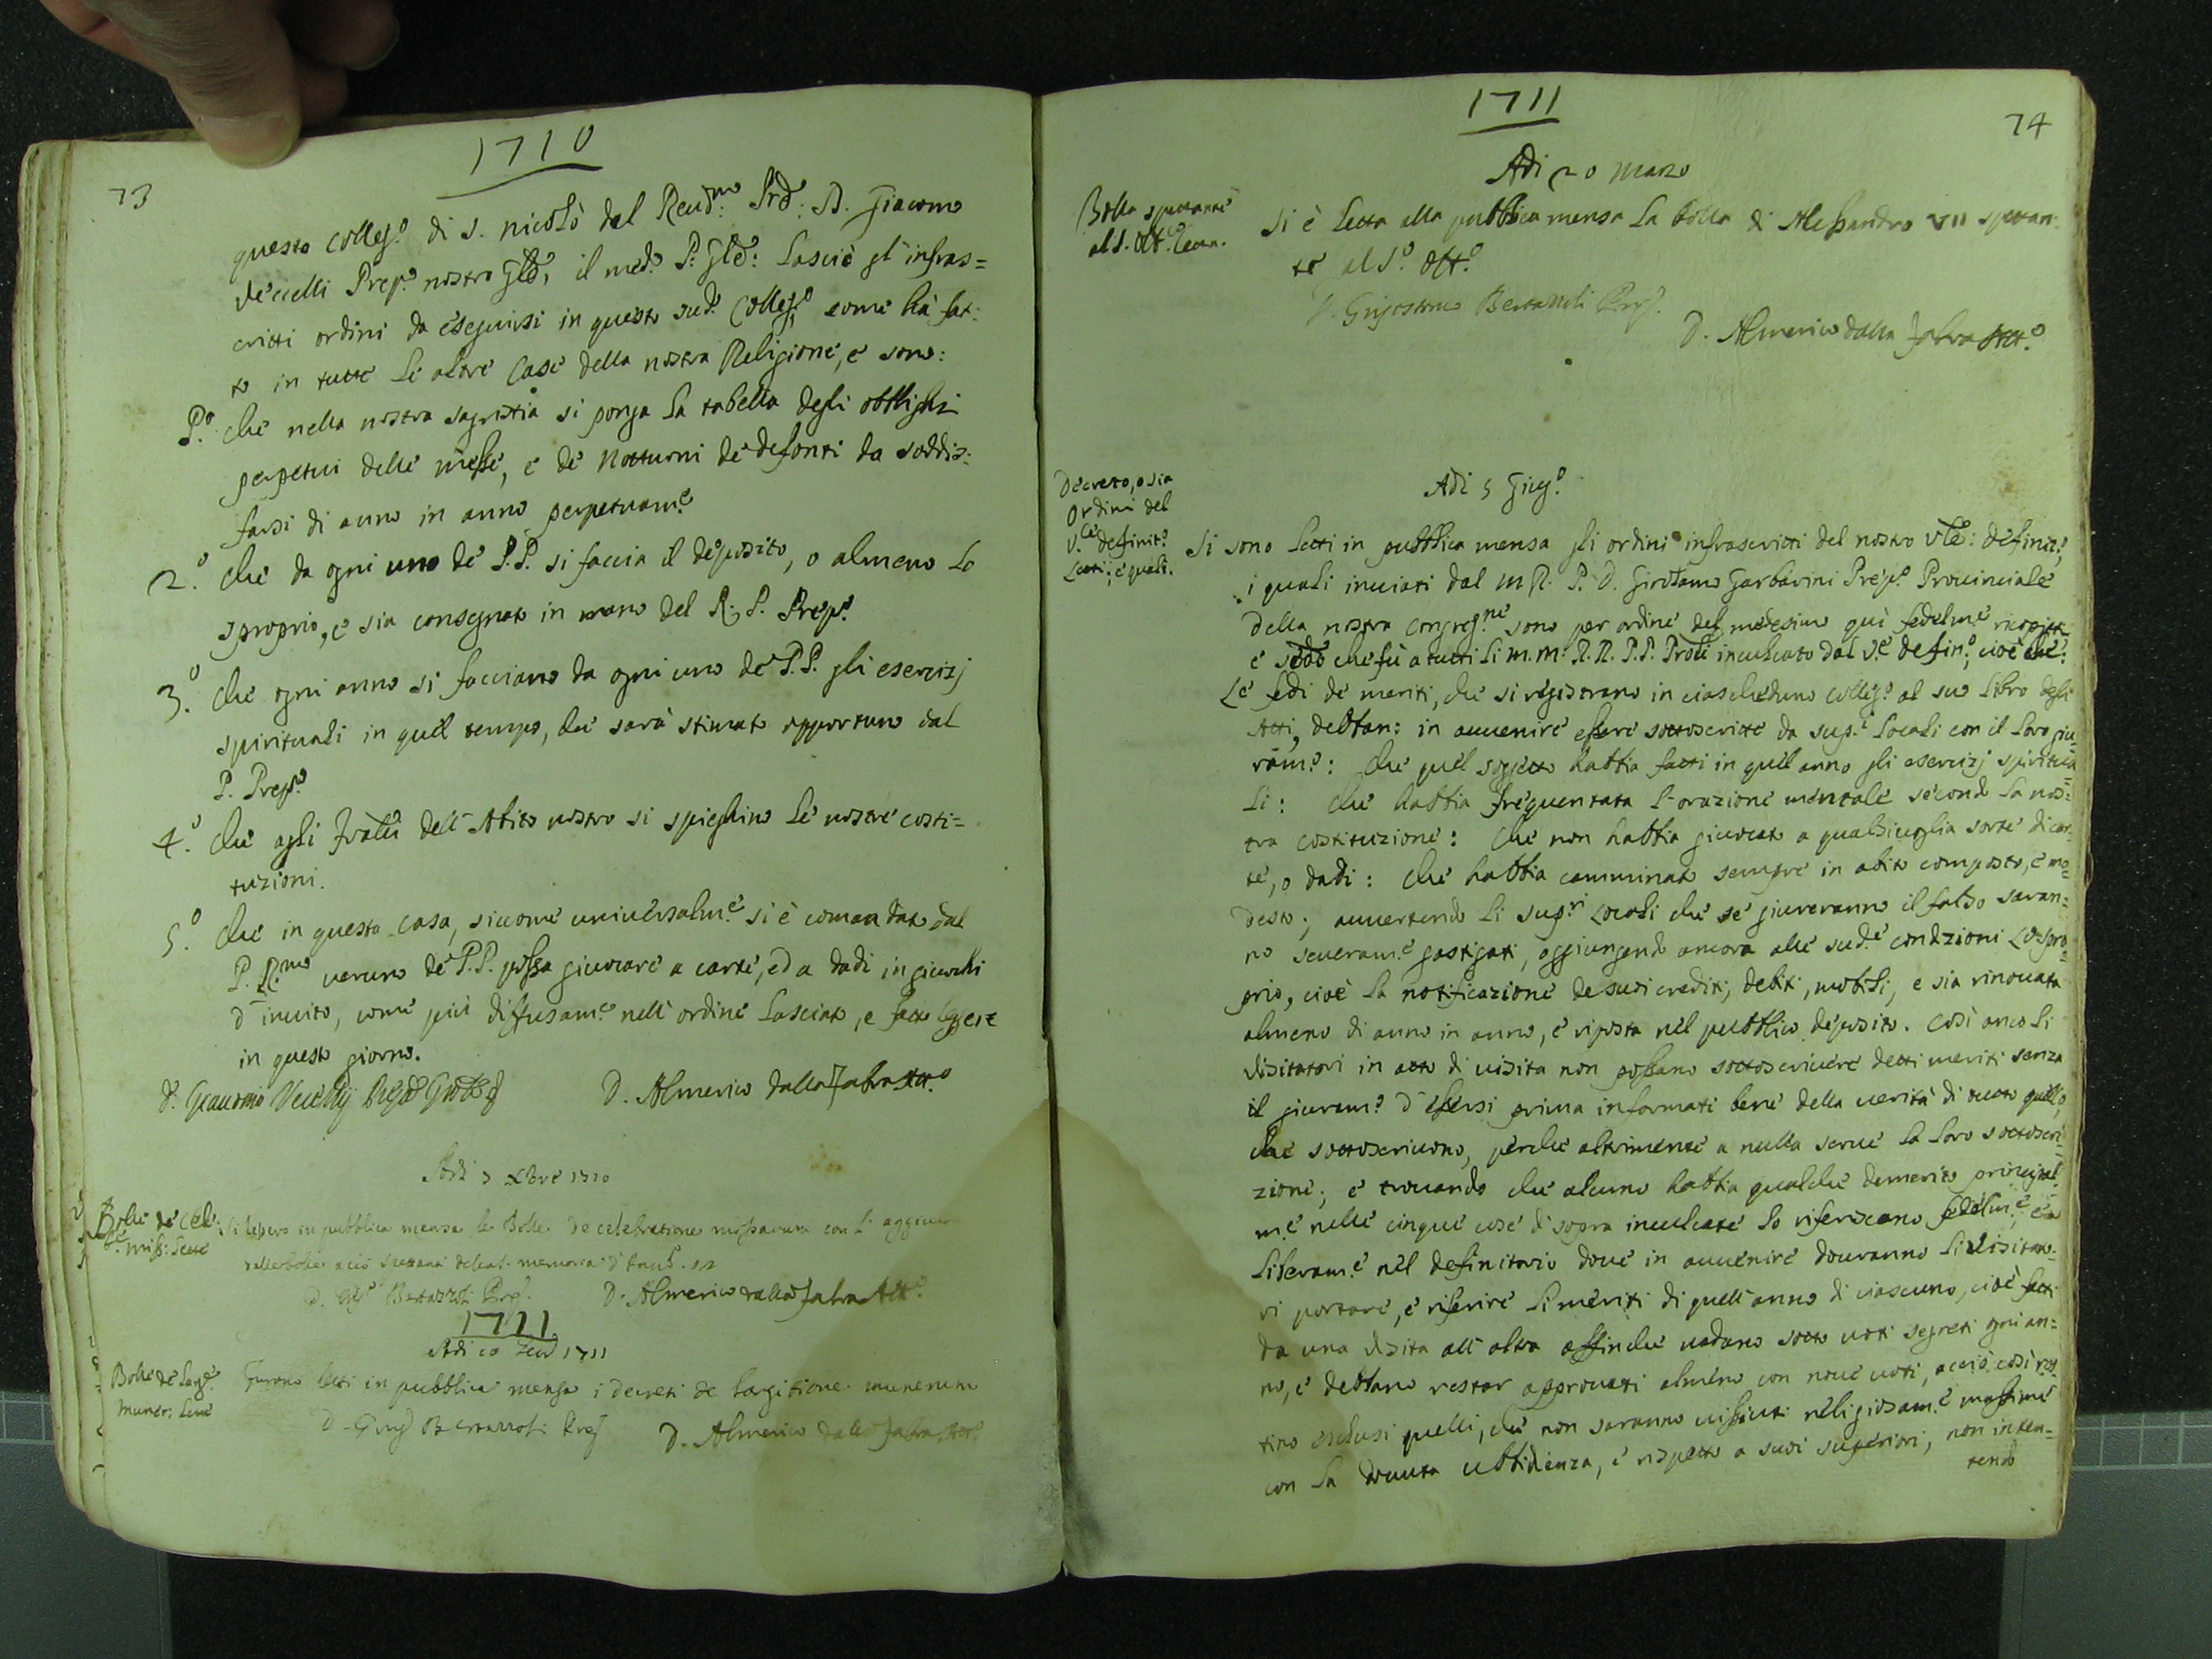 73
1710
questo Colleg.o di S. Nicolò del Reud.mo Prd: D. Giacomo
Vecelli Prep.o nostro Gle, il med.o P. Gle: lasciò gl'infras=
critti ordini da eseguirsi in questo sud.o Colleg.o, come hà fat:
to in tutte le altre Case della nostra Religione, e sono:
P.o Che nella nostra sagristia si ponga la tabella degli obblighi
perpetui delle messe, e de Notturni de defonti da soddis:
farsi di anno in anno perpetuam.e
2.o Che da ogni uno de P.P. si faccia il deposito, o almeno lo
sproprio, e sia consegnato in mano del R. P. Prep.o
3.o Che ogni anno si facciano da ogni uno de P.P. gli esercizj
spirituali in quel tempo, che sarà stimato opportuno dal
P. Prep.o
4.o Che agli Fratelli dell'Abito nostro si spieghino le nostre costi=
tuzioni.
5.o Che in questa casa, siccome universalm.e si è comandato dal
P. R.mo veruno de P.P. possa giuocare a carte, ed a dadi in giuochi
d'invito, come più diffusam.e nell'ordine lasciato, e fatto leggere
in questo giorno.
D. Almerico dalla Fabra Att.o
Adi 3 Xbre 1710
Bolle de Cel:
Miss: Lette
Si lessero in pubblica mensa le Bolle de celebratione missarum con l'
D. Almerico dalla Fabra Att.o
1711
Adi 10 1711
Bolle de Larg.e
Muner: Lette
Furono letti in pubblica mensa i decreti de largitione munerum
D. Almerico dalla Fabra Att.o
74
1711
Adi 20 Marzo
Bolla spettante
al S. Off.o Letta.
Si è letta alla pubblica mensa la bolla di Alessandro VII spettan:
te al S.o Off.o
D. Almerico dalla Fabra Att.o
Adi 5 Giug.o
Decreto, o sia
Ordini del
V.le definit.o
Letti; e quali.
Si sono letti in pubblica mensa gli ordini infrascritti del nostro Vle: definit.o,
i quali inviati dal M.R. P. D. Girolamo Garbarini Prep.o Provinciale
della nostra Congreg.ne sono per ordine del medesimo quì fedelm.e ricopiati
e che fù a tutti li m.m: R.R. P.P. inculcato dal V.e defin.o, cioè che:
Le fedi de meriti, che si registrano in ciascheduno Colleg.o al suo libro degli
Atti, debban: in avvenire essere sottoscritte da sup.i locali con il loro giu=
ram.o: Che quel soggetto habbia fatti in quel anno gli esercizj spiritua=
li: che habbia frequentata l'orazione mentale secondo la nos=
tra costituzione: Che non habbia giuocato a qualsivoglia sorte di car:
te, o dadi: Che habbia camminato sempre in abito composto, e mo=
desto; avvertendo li sup.ri Locali che se giureranno il falso saran=
no severam.e gastigati, aggiungendo ancora alle sud.e condizioni lo spro=
prio, cioè la notificazione de suoi crediti, debiti, mobili, e sia rinovata
almeno di anno in anno, e riposta nel pubblico deposito. Così anco li
Visitatori in atto di visita non possano sottoscrivere detti meriti senza
il giuram.o d'essersi prima informati bene della verità di tutto quello,
che sottoscrivono, perche altrimente a nulla serve la loro sottoscri=
zione; e trovando che alcuno habbia qualche demerito principal=
m.e nelle cinque cose di sopra inculcate lo riferiscano fedelm.e, e
liberam.e nel definitorio dove in avvenire dovranno li visitato=
ri portare, e riferire li meriti di quell'anno di ciascuno, cioè fatti
da una visita all'altra affinche vadano sotto voti segreti ogni an=
no, e debbano restar approvati almeno con nove voti, acciò così res=
tino esclusi quelli, che non saranno vissuti religiosam.e massime
con la dovuta ubbidienza, e rispetto a suoi superiori, non inten=
tendo